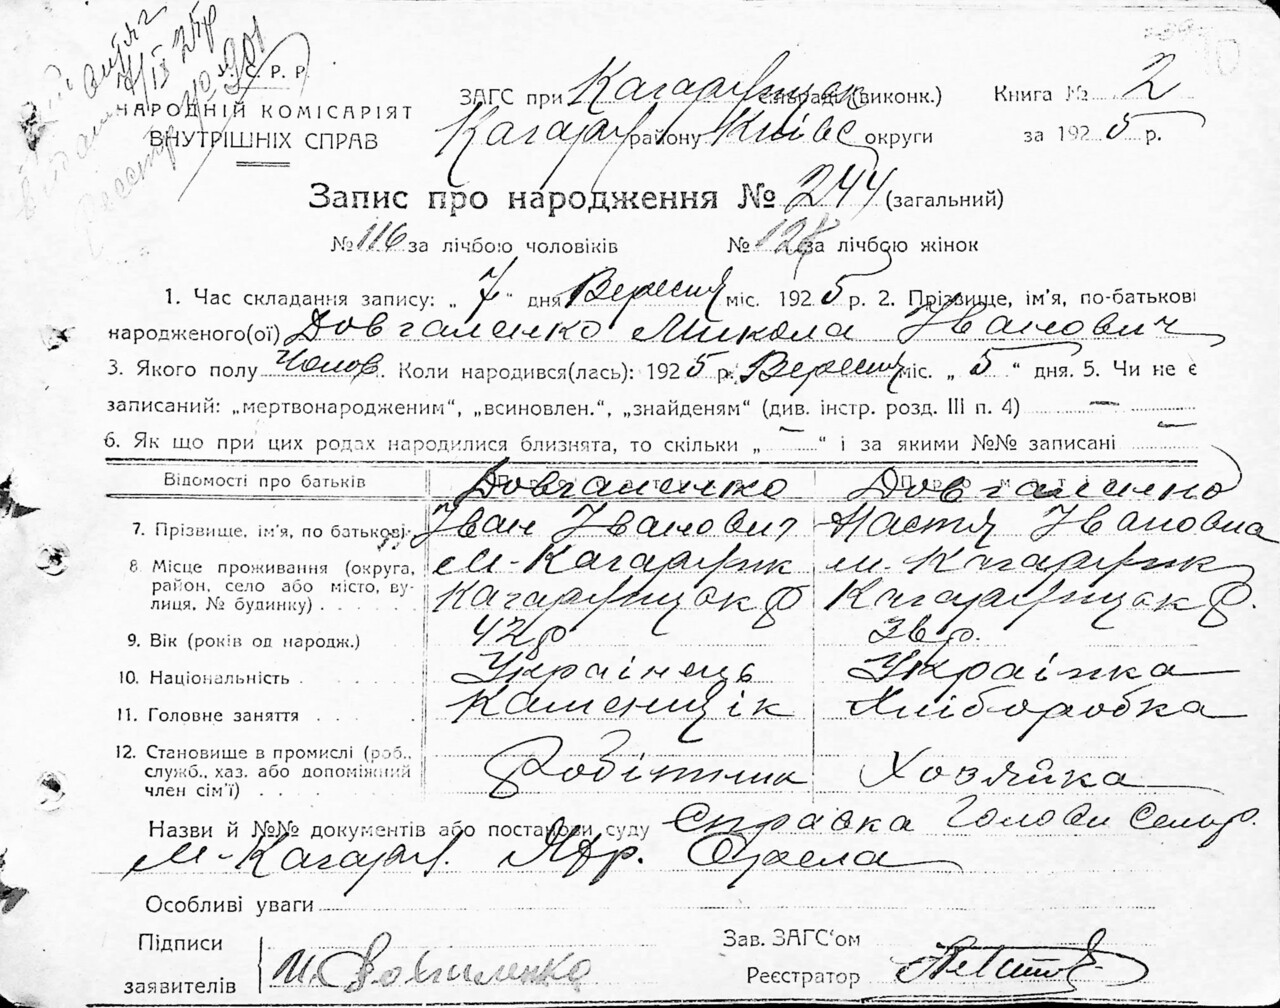 У. С. Р. Р.
НАРОДНІЙ КОМІСАРІЯТ
ВНУТРІШНІХ СПРАВ
ЗАГС при Кагарлицьк сельради (виконк.) Книга № 2
Кагарл району Київс округи за 1925 р.
Запис про народження № 244 (загальний)
№ 116 за лічбою чоловіків № за лічбою жінок
1. Час складання запису: „ 7 “ дня Вересня міс. 1925 р. 2. Прізвище, ім'я, по-батькові
народженого(ої) Довгаленко Микола Іванович
3. Якого полу Чолов. Коли народився(лась): 1925 р. Вересня міс. „ 5 “ дня. 5. Чи не є
записаний: „мертвонародженим“, „всиновлен.“, „знайденям“ (див. інстр. розд. III п. 4) —
6. Як що при цих родах народилися близнята, то скільки „ — “ і за якими №№ записані —
Відомості про батьків Довгаленко Довгаленко
7. Прізвище, ім'я, по батькові Іван Іванович Настя Івановна
8. Місце проживання (округа, м-Кагарлик м. Кагарлик
район, село або місто, ву-
лиця, № будинку) Кагарлицьк р Кагарлицьк р.
9. Вік (років од народж.) 42 р 36 р.
10. Національність Українець Українка
11. Головне заняття Каменщік Хліборобка
12. Становище в промислі (роб.,
служб., хаз. або допоміжний Робітник Хозяйка
член сім'ї)
Назви й №№ документів або постанови суду Справка Голови Сельр.
м-Кагарл.
Особливі уваги
Підписи Зав. ЗАГС'ом
заявителів И. Довгаленко Реєстратор